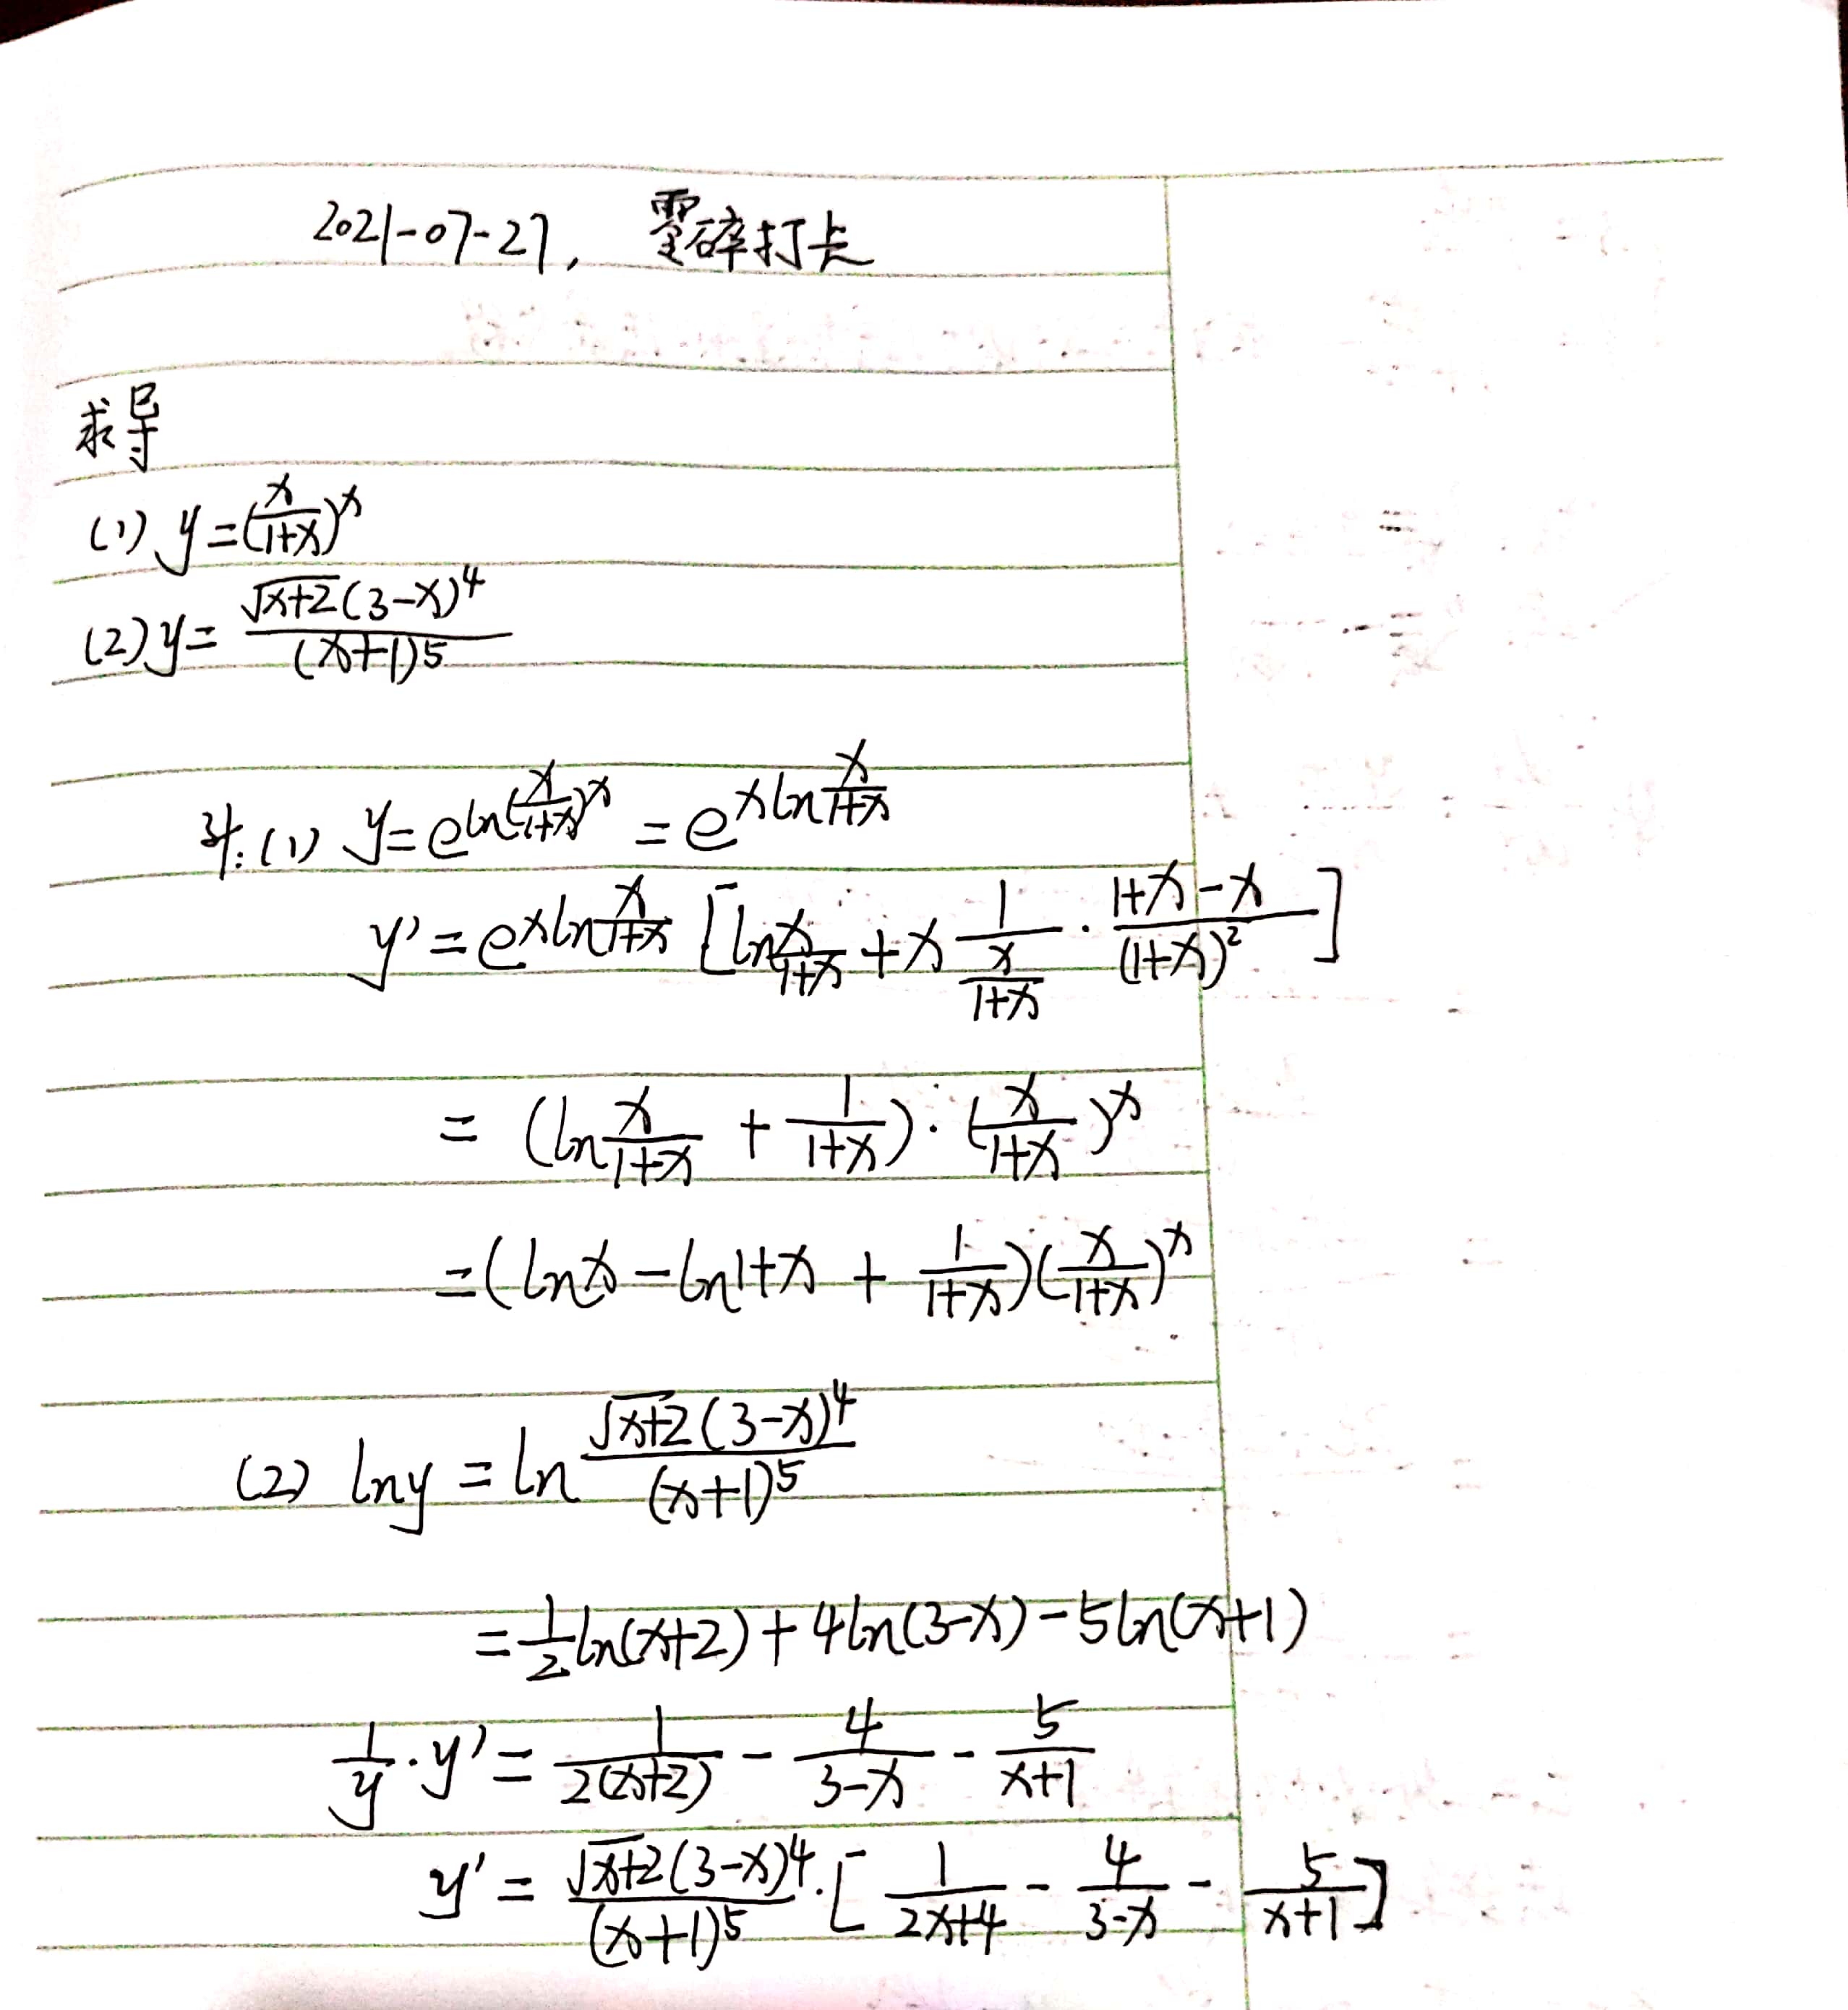 2021-07-27, 零碎打卡
求导
(1) y=(x/(1+x))^x
(2) y= √(x+2)(3-x)^4/(x+1)^5
(1) y=e^(ln(x/(1+x))^x) = e^(xln x/(1+x))
y'=e^(xln x/(1+x)) [ln x/(1+x) + x 1/(x/(1+x)) · (1+x-x)/(1+x)^2]
= (ln x/(1+x) + 1/(1+x))·(x/(1+x))^x
=(lnx-ln1+x + 1/(1+x))(x/(1+x))^x
(2) lny = ln √(x+2)(3-x)^4/(x+1)^5
=1/2 ln(x+2)+4ln(3-x)-5ln(x+1)
1/y·y'= 1/(2(x+2)) - 4/(3-x) - 5/(x+1)
y' = √(x+2)(3-x)^4/(x+1)^5·[1/(2x+4) - 4/(3-x) - 5/(x+1)]